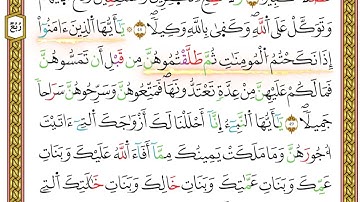 وَتَوَكَّلْ عَلَى ٱللَّهِ وَكَفَىٰ بِٱللَّهِ وَكِيلًا يَٰٓأَيُّهَا ٱلَّذِينَ ءَامَنُوٓا۟
إِذَا نَكَحْتُمُ ٱلْمُؤْمِنَٰتِ ثُمَّ طَلَّقْتُمُوهُنَّ مِن قَبْلِ أَن تَمَسُّوهُنَّ
فَمَا لَكُمْ عَلَيْهِنَّ مِنْ عِدَّةٍ تَعْتَدُّونَهَا فَمَتِّعُوهُنَّ وَسَرِّحُوهُنَّ سَرَاحًا
جَمِيلًا يَٰٓأَيُّهَا ٱلنَّبِىُّ إِنَّآ أَحْلَلْنَا لَكَ أَزْوَٰجَكَ ٱلَّٰتِىٓ ءَاتَيْتَ
أُجُورَهُنَّ وَمَا مَلَكَتْ يَمِينُكَ مِمَّآ أَفَآءَ ٱللَّهُ عَلَيْكَ وَبَنَاتِ
عَمِّكَ وَبَنَاتِ عَمَّٰتِكَ وَبَنَاتِ خَالِكَ وَبَنَاتِ خَٰلَٰتِكَ ٱلَّٰتِى
ربع